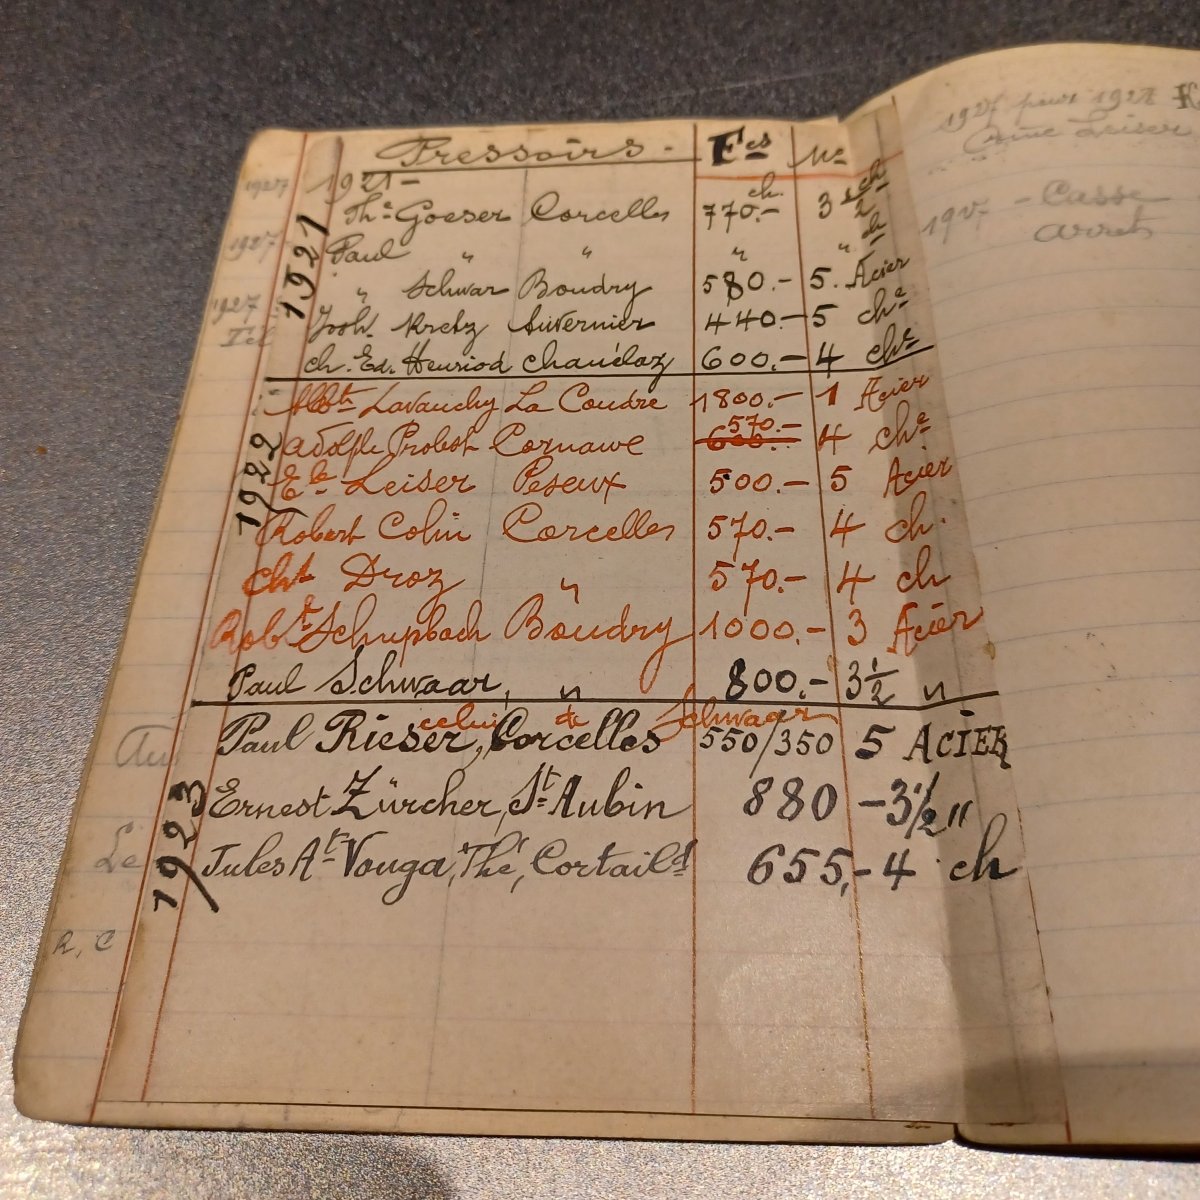 Pressoirs. - Fcs No
1921 -
Thc Goeser Corcelles 770.- ch. 3 1/2 ch
Paul " " " " ch
" Schwar Boudry 580.- 5. Acier
Kretz Auvernier 440.- 5 che
ch. Ed. Henriod chanélaz 600.- 4 che
1921
Albte Lavanchy La Coudre 1800.- 1 Acier
570.-
Adolphe Probst Cornaux 600.- 4 che
Leiser Peseux 500.- 5 Acier
Robert Colin Corcelles 570.- 4 ch.
Cht Droz " 570.- 4 ch
Robt Schupbach Boudry 1000.- 3 Acier
Paul Schwaar, " 800.- 3 1/2 "
1922
celui de Schwaar
Paul Rieser, Corcelles 550/350 5 ACIER
Ernest Zürcher, St Aubin 880 - 3 1/2 "
Jules At Vouga, Thé, Cortaild 655,- 4 ch
1923
1927
1927
1927
Au
Le
R, C
1927 pour 1928
Leiser
1927 - Casse
arrets